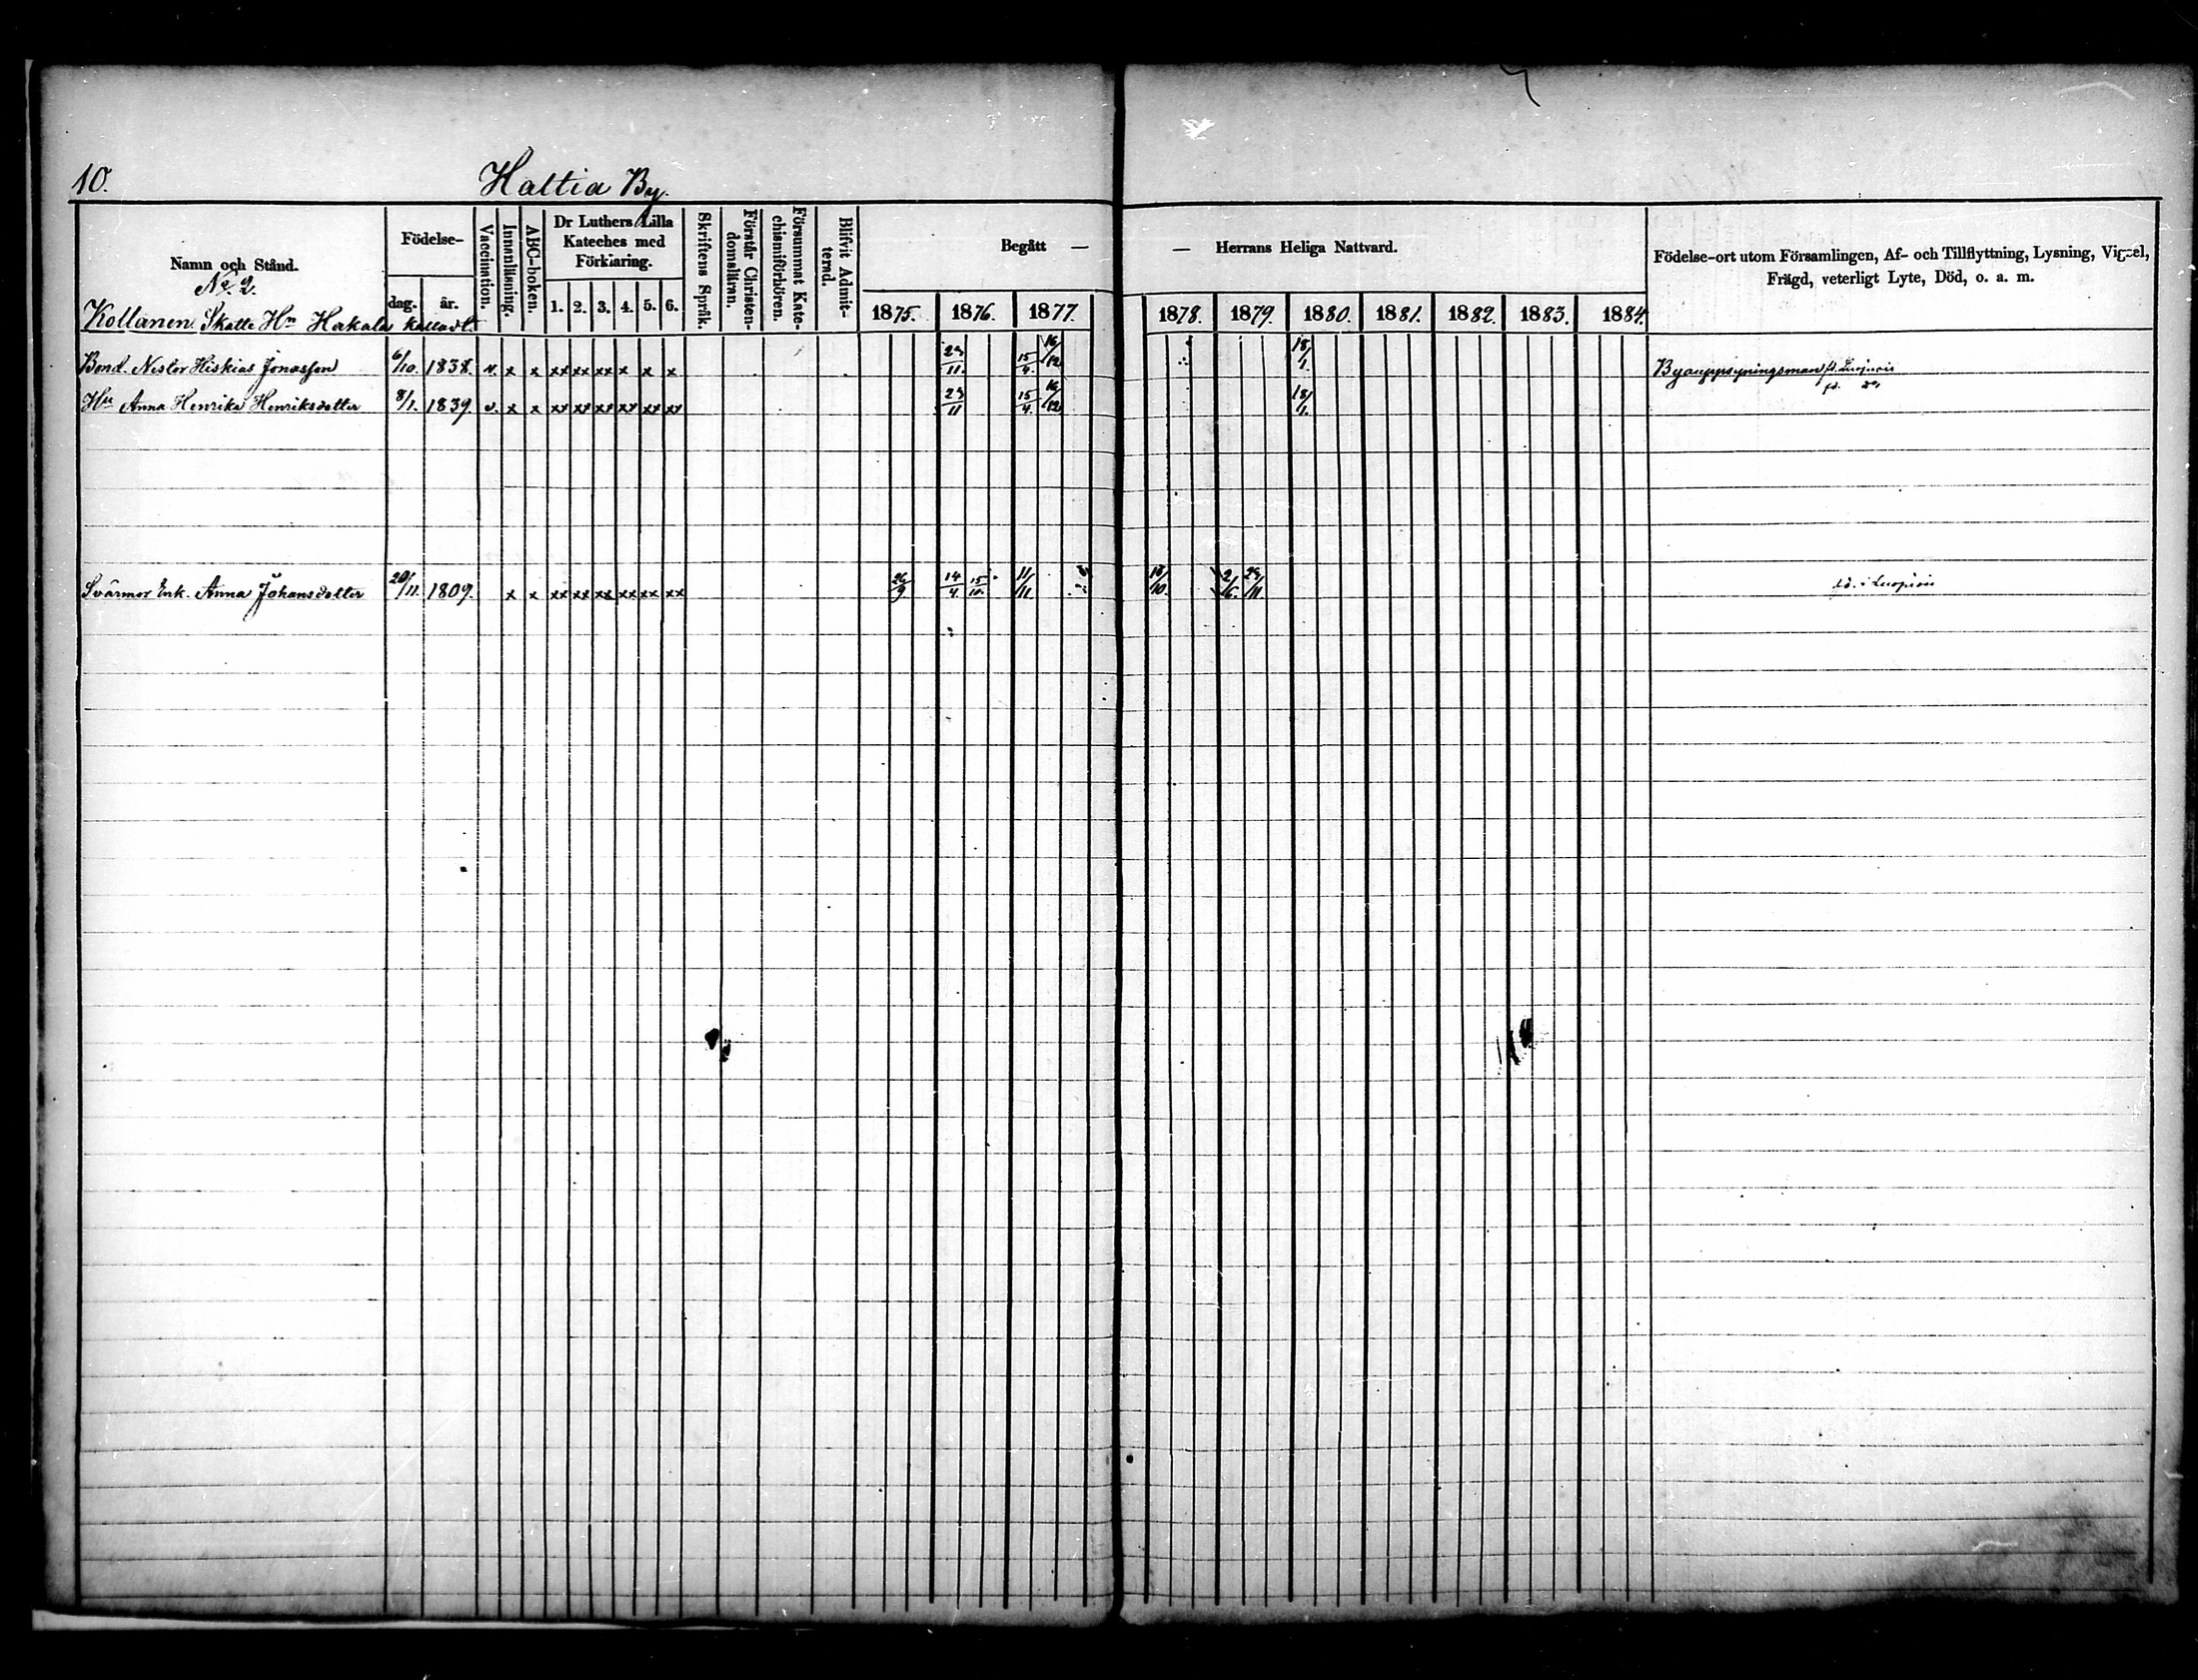 10.
Haltia By.
Namn och Stånd.
Födelse-
dag. år.
Vaccination.
Innanläsning.
ABC-boken.
Dr Luthers Lilla
Kateches med
Förklaring.
1. 2. 3. 4. 5. 6.
Skriftens Språk.
Förstår Christen-
domsläran.
Försummat Kate-
chismiförhören.
Blifvit Admit-
terad.
Begått —
1875. 1876. 1877.
— Herrans Heliga Nattvard.
1878. 1879. 1880. 1881. 1882. 1883. 1884.
Födelse-ort utom Församlingen, Af- och Tillflyttning, Lysning, Vigsel,
Frägd, veterligt Lyte, Död, o. a. m.
No 2.
Kollanen Skatte Hn Hakala kalladt.
Bond. Nestor Hiskias Jonasson 6/10. 1838. v. x x xx xx xx x x x 23/11. 15/4. 16/12 18/1. Byauppsyningsman fd. Luopiois
Hu Anna Henrika Henriksdotter 8/1. 1839. v. x x xx xx xx xx xx xx 23/11 15/4. 16/12 18/1. fd. do
Svärmor Enk. Anna Johansdotter 20/11. 1809. x x xx xx xx xx xx xx 26/9 14/4. 15/10. 11/11 13/10. 2/6. 23/11. fd. i Luopiois